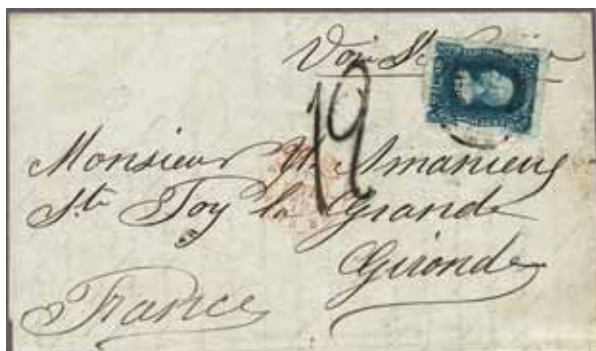 Voie St
12
Monsieur Amanieu
Ste Foy la Grande
Gironde
France